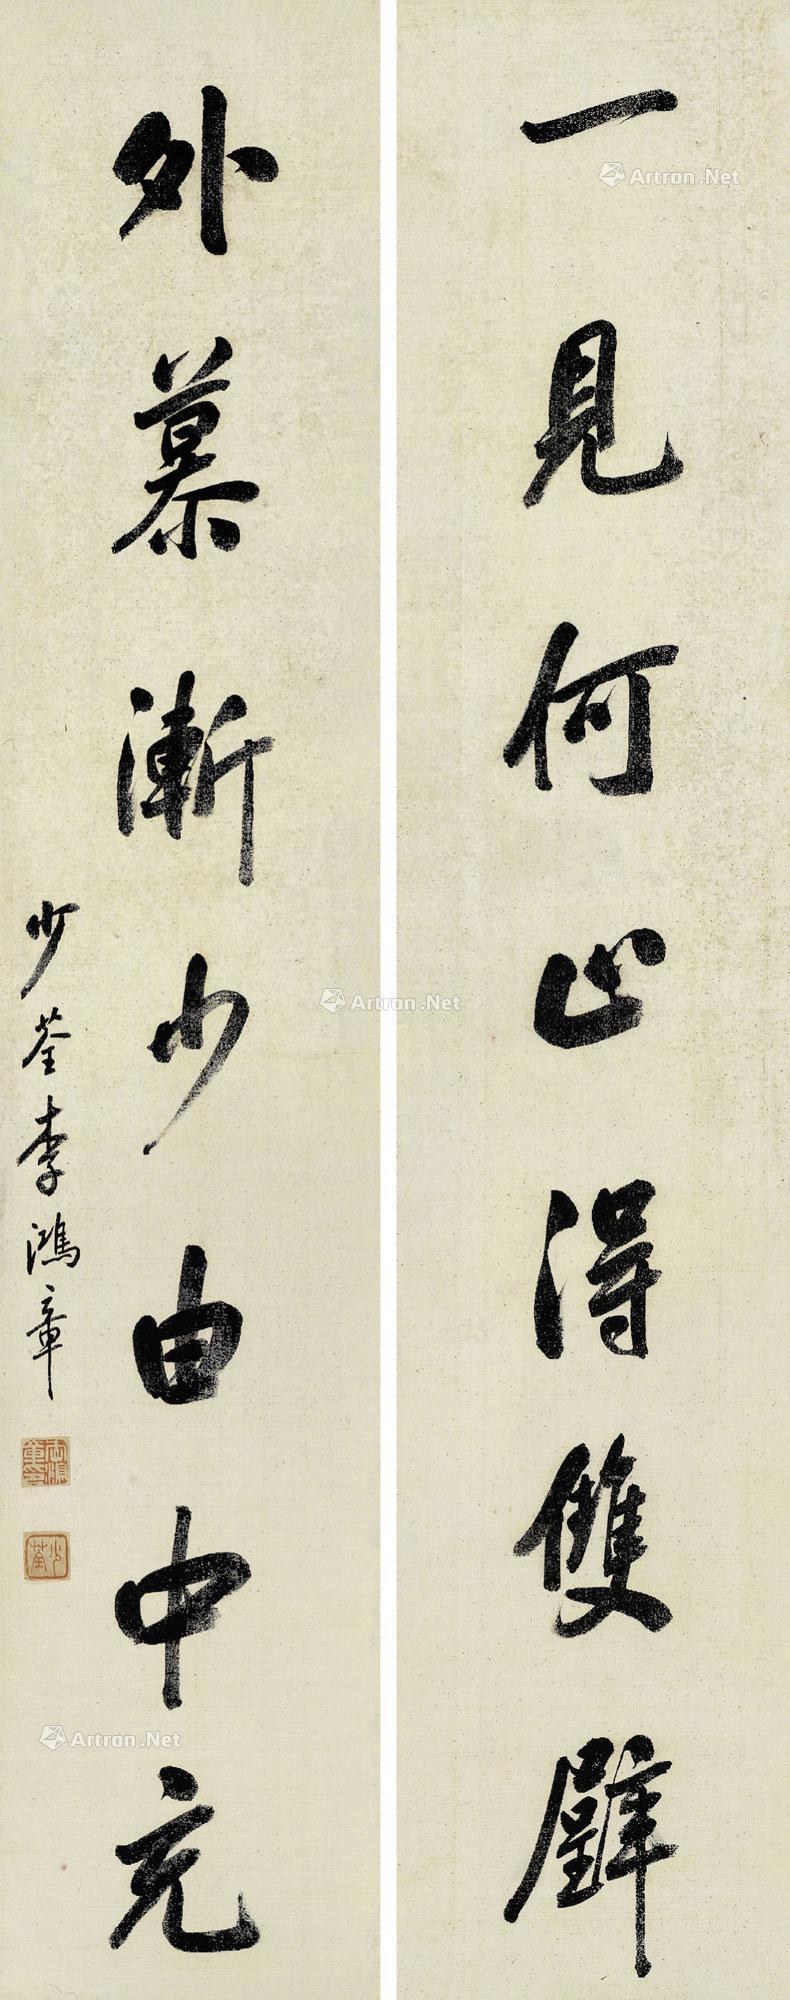 一見何止得雙璧
外慕漸少由中充
少荃李鴻章
李鴻章印
少荃
Artron.Net
Artron.Net
Artron.Net